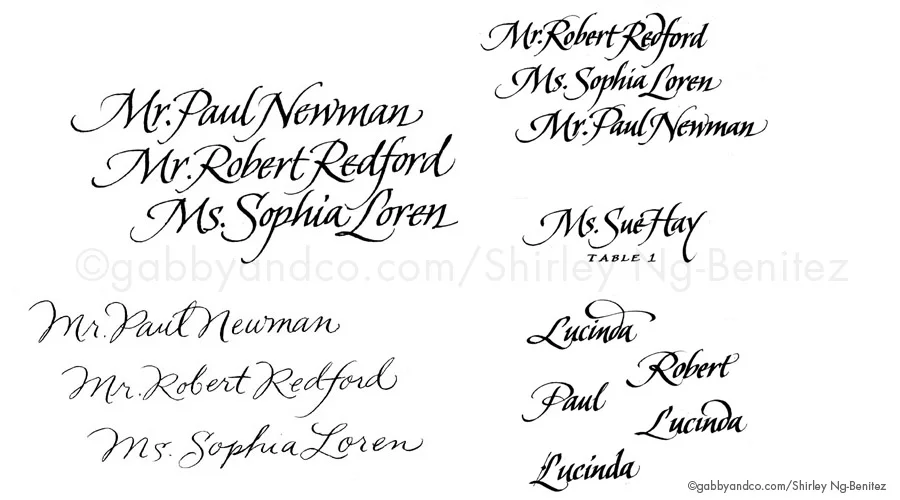 Mr. Paul Newman
Mr. Robert Redford
Ms. Sophia Loren
Mr. Robert Redford
Ms. Sophia Loren
Mr. Paul Newman
Ms. Sue Hay
TABLE 1
©gabbyandco.com/Shirley Ng-Benitez
Mr. Paul Newman
Mr. Robert Redford
Ms. Sophia Loren
Lucinda
Robert
Paul
Lucinda
Lucinda
©gabbyandco.com/Shirley Ng-Benitez